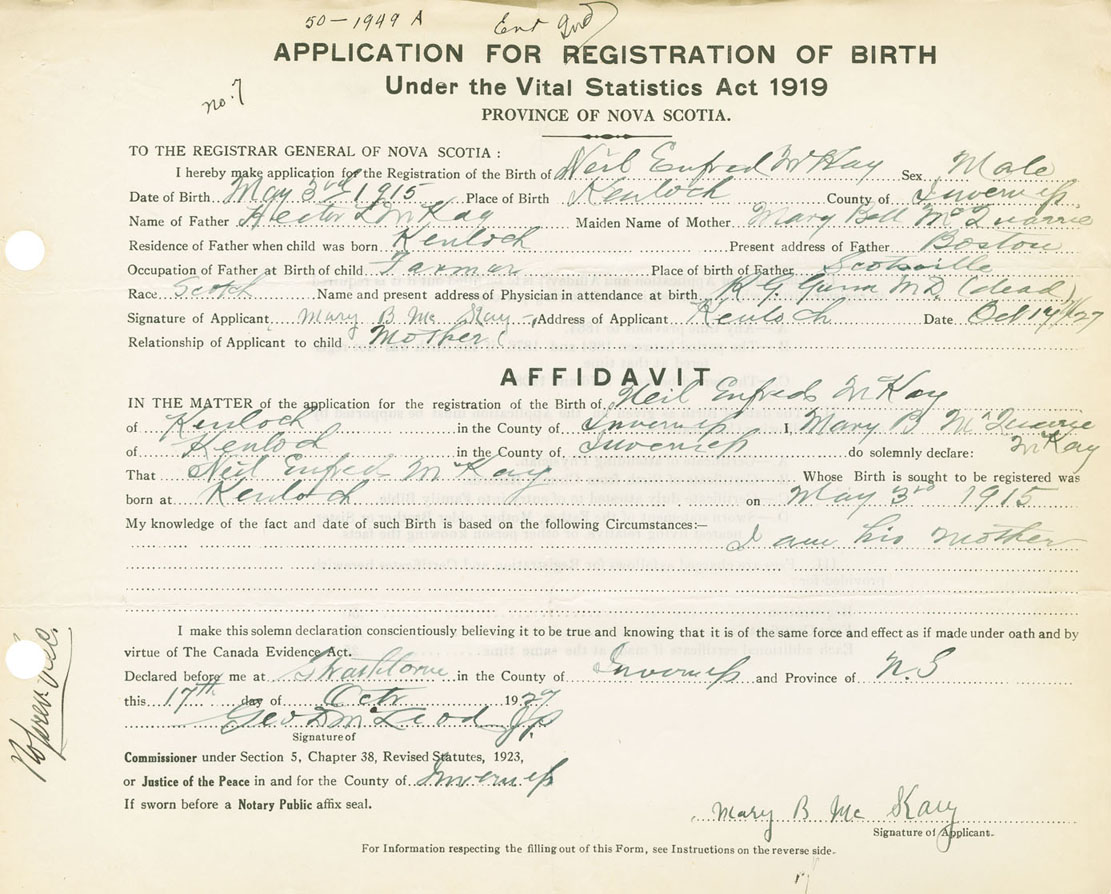 50-1949 A
APPLICATION FOR REGISTRATION OF BIRTH
Under the Vital Statistics Act 1919
no. 7
PROVINCE OF NOVA SCOTIA.
TO THE REGISTRAR GENERAL OF NOVA SCOTIA :
I hereby make application for the Registration of the Birth of Neil Enfred McKay Sex Male
Date of Birth May 3rd 1915 Place of Birth Kenloch County of Inverness
Name of Father Hector D McKay Maiden Name of Mother Mary Bell McQuarrie
Residence of Father when child was born Kenloch Present address of Father Boston
Occupation of Father at Birth of child Farmar Place of birth of Father Scotsville
Race Scotch Name and present address of Physician in attendance at birth K G. Gunn M.D. (dead)
Signature of Applicant Mary B Mc Kay Address of Applicant Kenloch Date Oct 17/27
Relationship of Applicant to child Mother
AFFIDAVIT
IN THE MATTER of the application for the registration of the Birth of Neil Enfreds McKay
of Kenloch in the County of Inverness I, Mary B McQuarrie
of Kenloch in the County of Inverness do solemnly declare: McKay
That Neil Enfred McKay Whose Birth is sought to be registered was
born at Kenloch on May 3rd 1915
My knowledge of the fact and date of such Birth is based on the following Circumstances:—
I am his Mother
I make this solemn declaration conscientiously believing it to be true and knowing that it is of the same force and effect as if made under oath and by
virtue of The Canada Evidence Act.
Declared before me at Strathlorne in the County of Inverness and Province of N.S
this 17th day of Octr 1927
Geo D McLeod J.P.
Signature of
Commissioner under Section 5, Chapter 38, Revised Statutes, 1923,
or Justice of the Peace in and for the County of Inverness
If sworn before a Notary Public affix seal.
Mary B Mc Kay
Signature of Applicant.
For Information respecting the filling out of this Form, see Instructions on the reverse side.